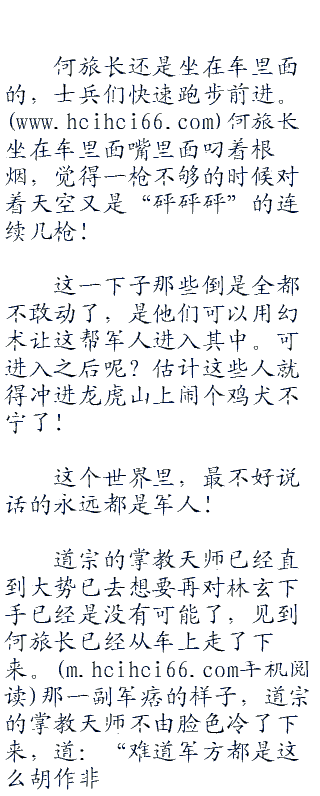 何旅长还是坐在车里面
的，士兵们快速跑步前进。
(www.hcihci66.com)何旅长
坐在车里面嘴里面叼着根
烟，觉得一枪不够的时候对
着天空又是“砰砰砰”的连
续几枪！
这一下子那些倒是全都
不敢动了，是他们可以用幻
术让这帮军人进入其中。可
进入之后呢？估计这些人就
得冲进龙虎山上闹个鸡犬不
宁了！
这个世界里，最不好说
话的永远都是军人！
道宗的掌教天师已经直
到大势已去想要再对林玄下
手已经是没有可能了，见到
何旅长已经从车上走了下
来。(m.hcihci66.com手机阅
读)那一副军痞的样子，道宗
的掌教天师不由脸色冷了下
来，道：“难道军方都是这
么胡作非